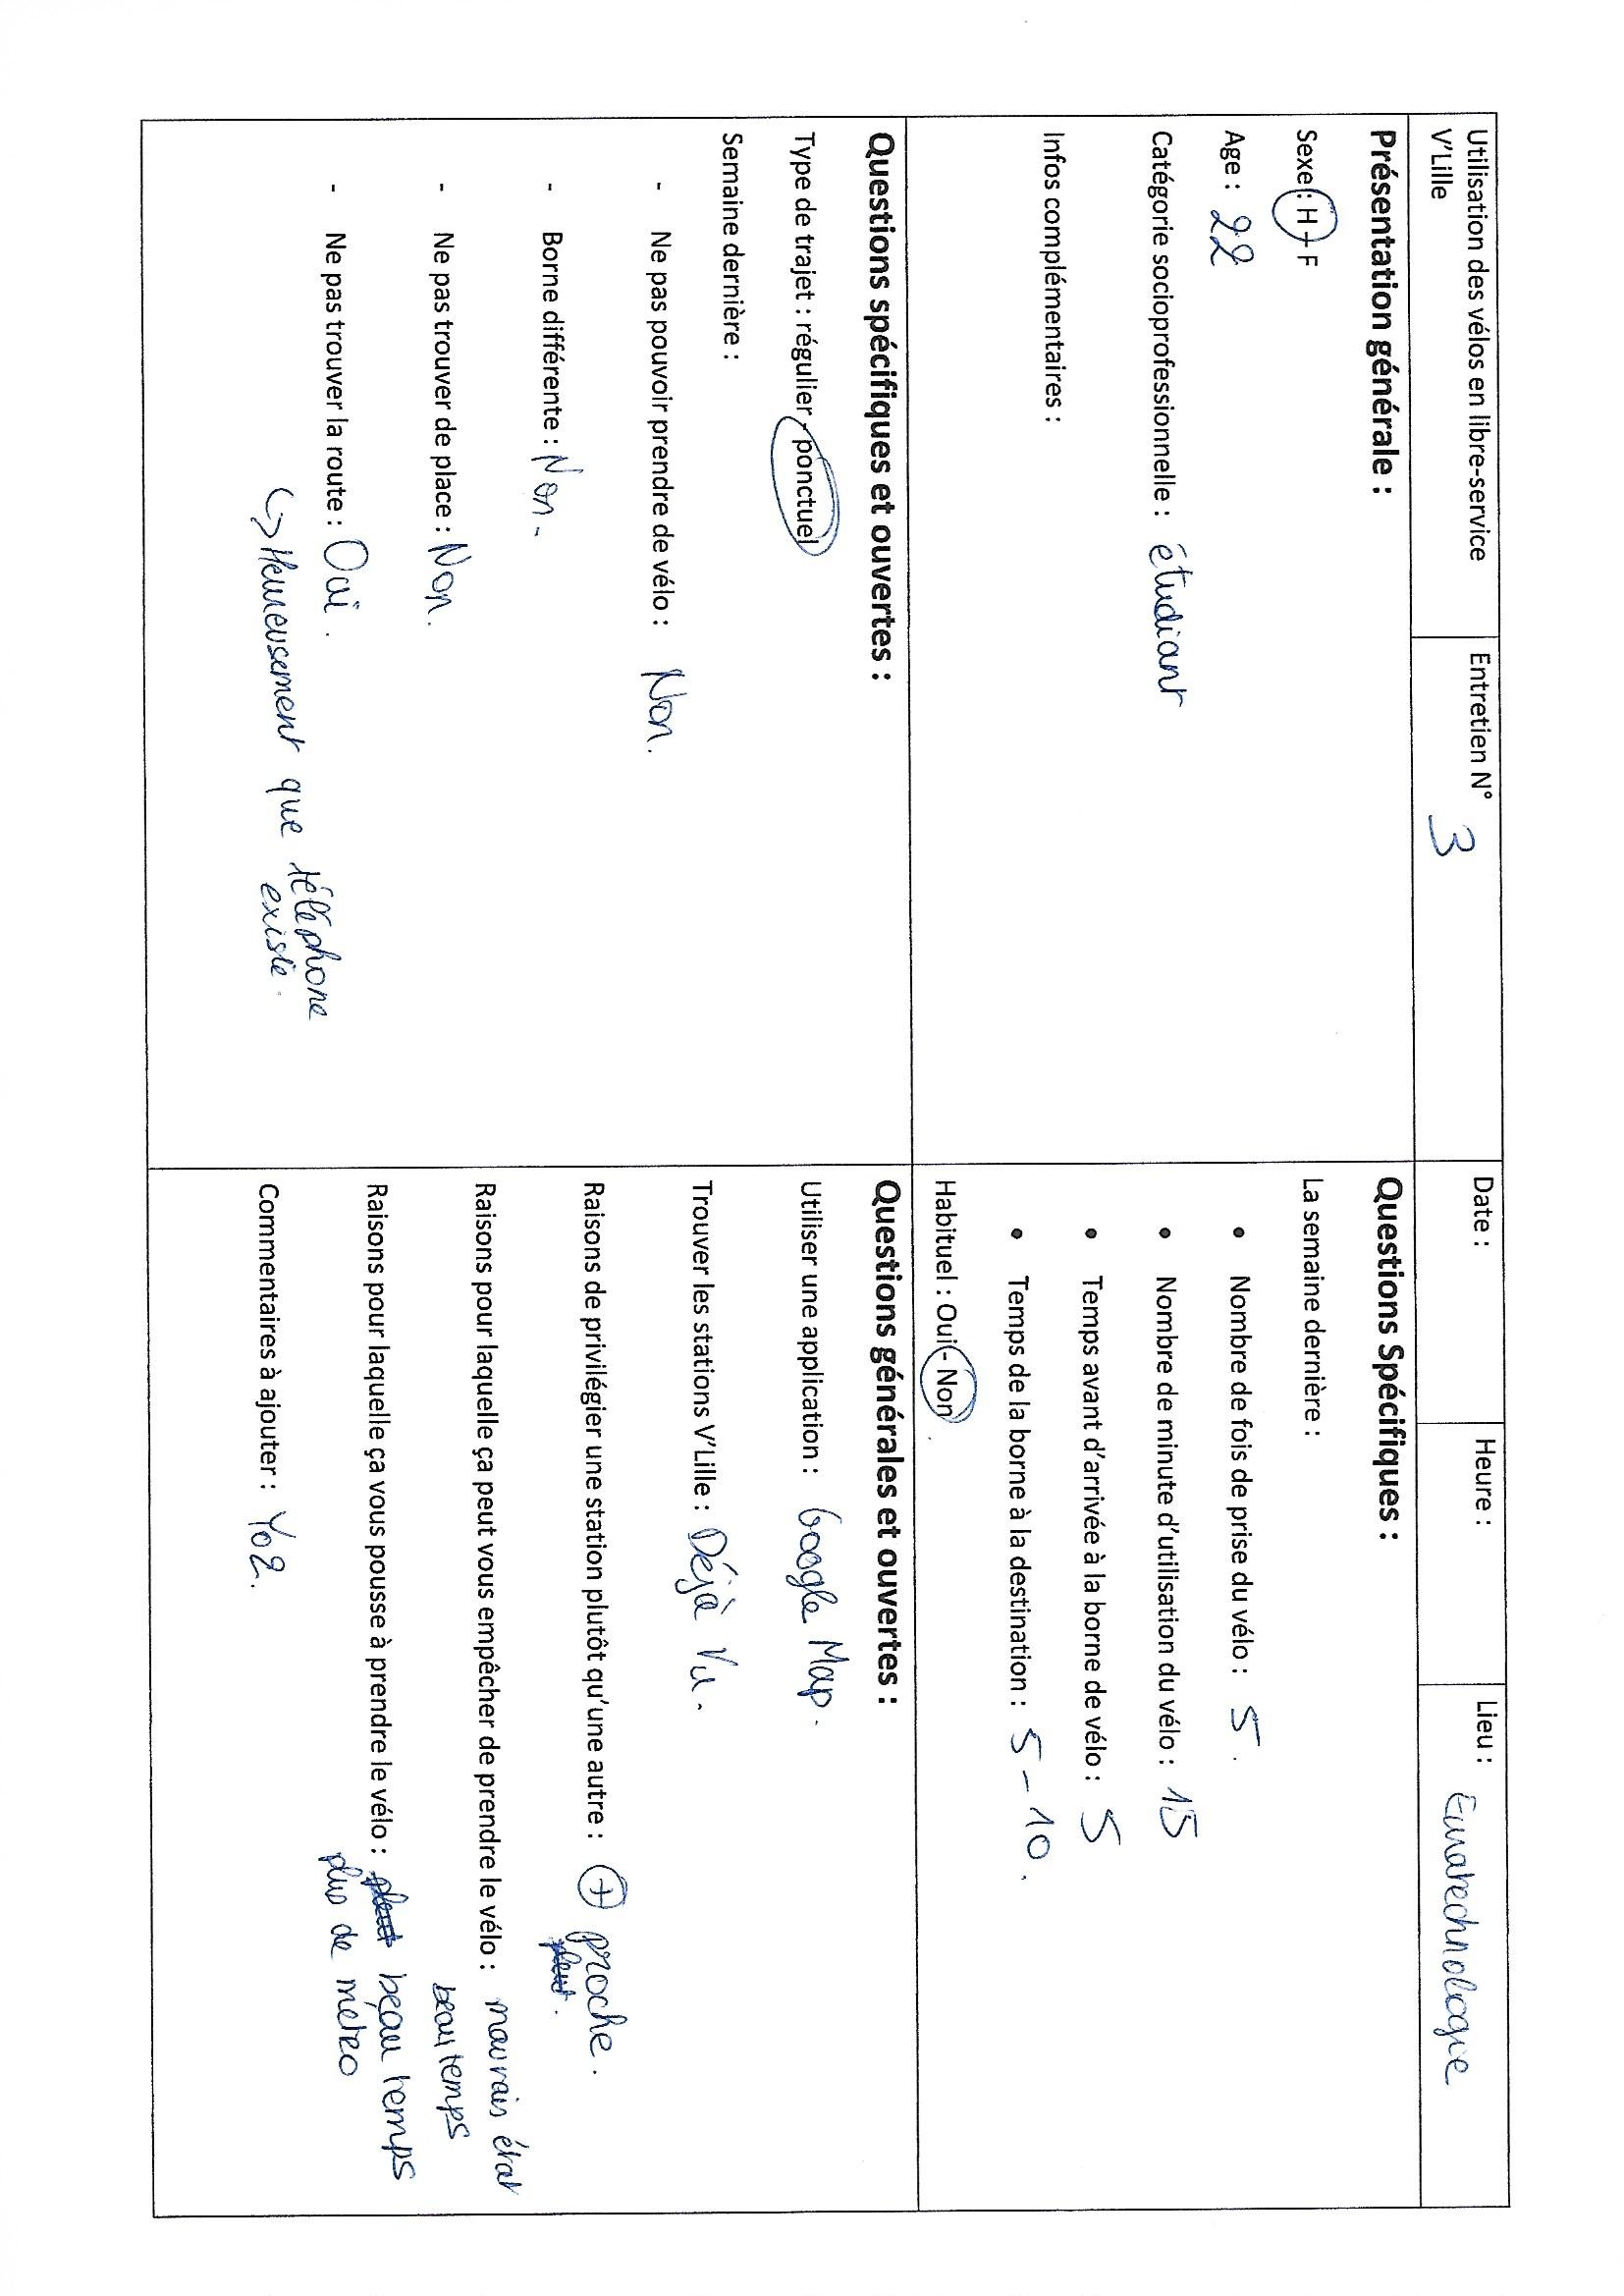 Utilisation des vélos en libre-service
V'Lille
Entretien N° 3
Date :
Heure :
Lieu : Euratechnologie
Présentation générale :
Sexe : H - F
Age : 22
Catégorie socioprofessionnelle : étudiant
Infos complémentaires :
Questions Spécifiques :
La semaine dernière :
• Nombre de fois de prise du vélo : 5.
• Nombre de minute d'utilisation du vélo : 15
• Temps avant d'arrivée à la borne de vélo : 5
• Temps de la borne à la destination : 5 - 10.
Habituel : Oui - Non
Questions spécifiques et ouvertes :
Type de trajet : régulier - ponctuel
Semaine dernière :
- Ne pas pouvoir prendre de vélo : Non.
- Borne différente : Non-
- Ne pas trouver de place : Non.
- Ne pas trouver la route : Oui.
↳ Heureusement que téléphone
existe.
Questions générales et ouvertes :
Utiliser une application : Google Map.
Trouver les stations V'Lille : Déjà Vu.
Raisons de privilégier une station plutôt qu'une autre : + proche.
pleut.
Raisons pour laquelle ça peut vous empêcher de prendre le vélo : mauvais état
beau temps
Raisons pour laquelle ça vous pousse à prendre le vélo : pleut beau temps
plus de métro
Commentaires à ajouter :